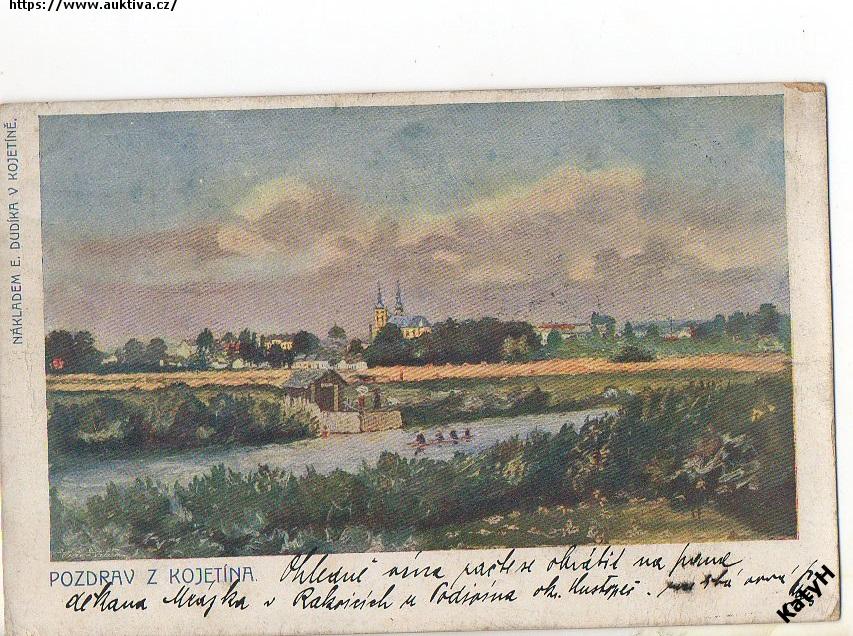 https://www.auktiva.cz/
NÁKLADEM E. DUDÍKA V KOJETÍNĚ.
POZDRAV Z KOJETÍNA.
Ohledně vína račte se obrátit na pana
děkana v Rakvicích u Podivína okr. Hustopeč.
KatyH